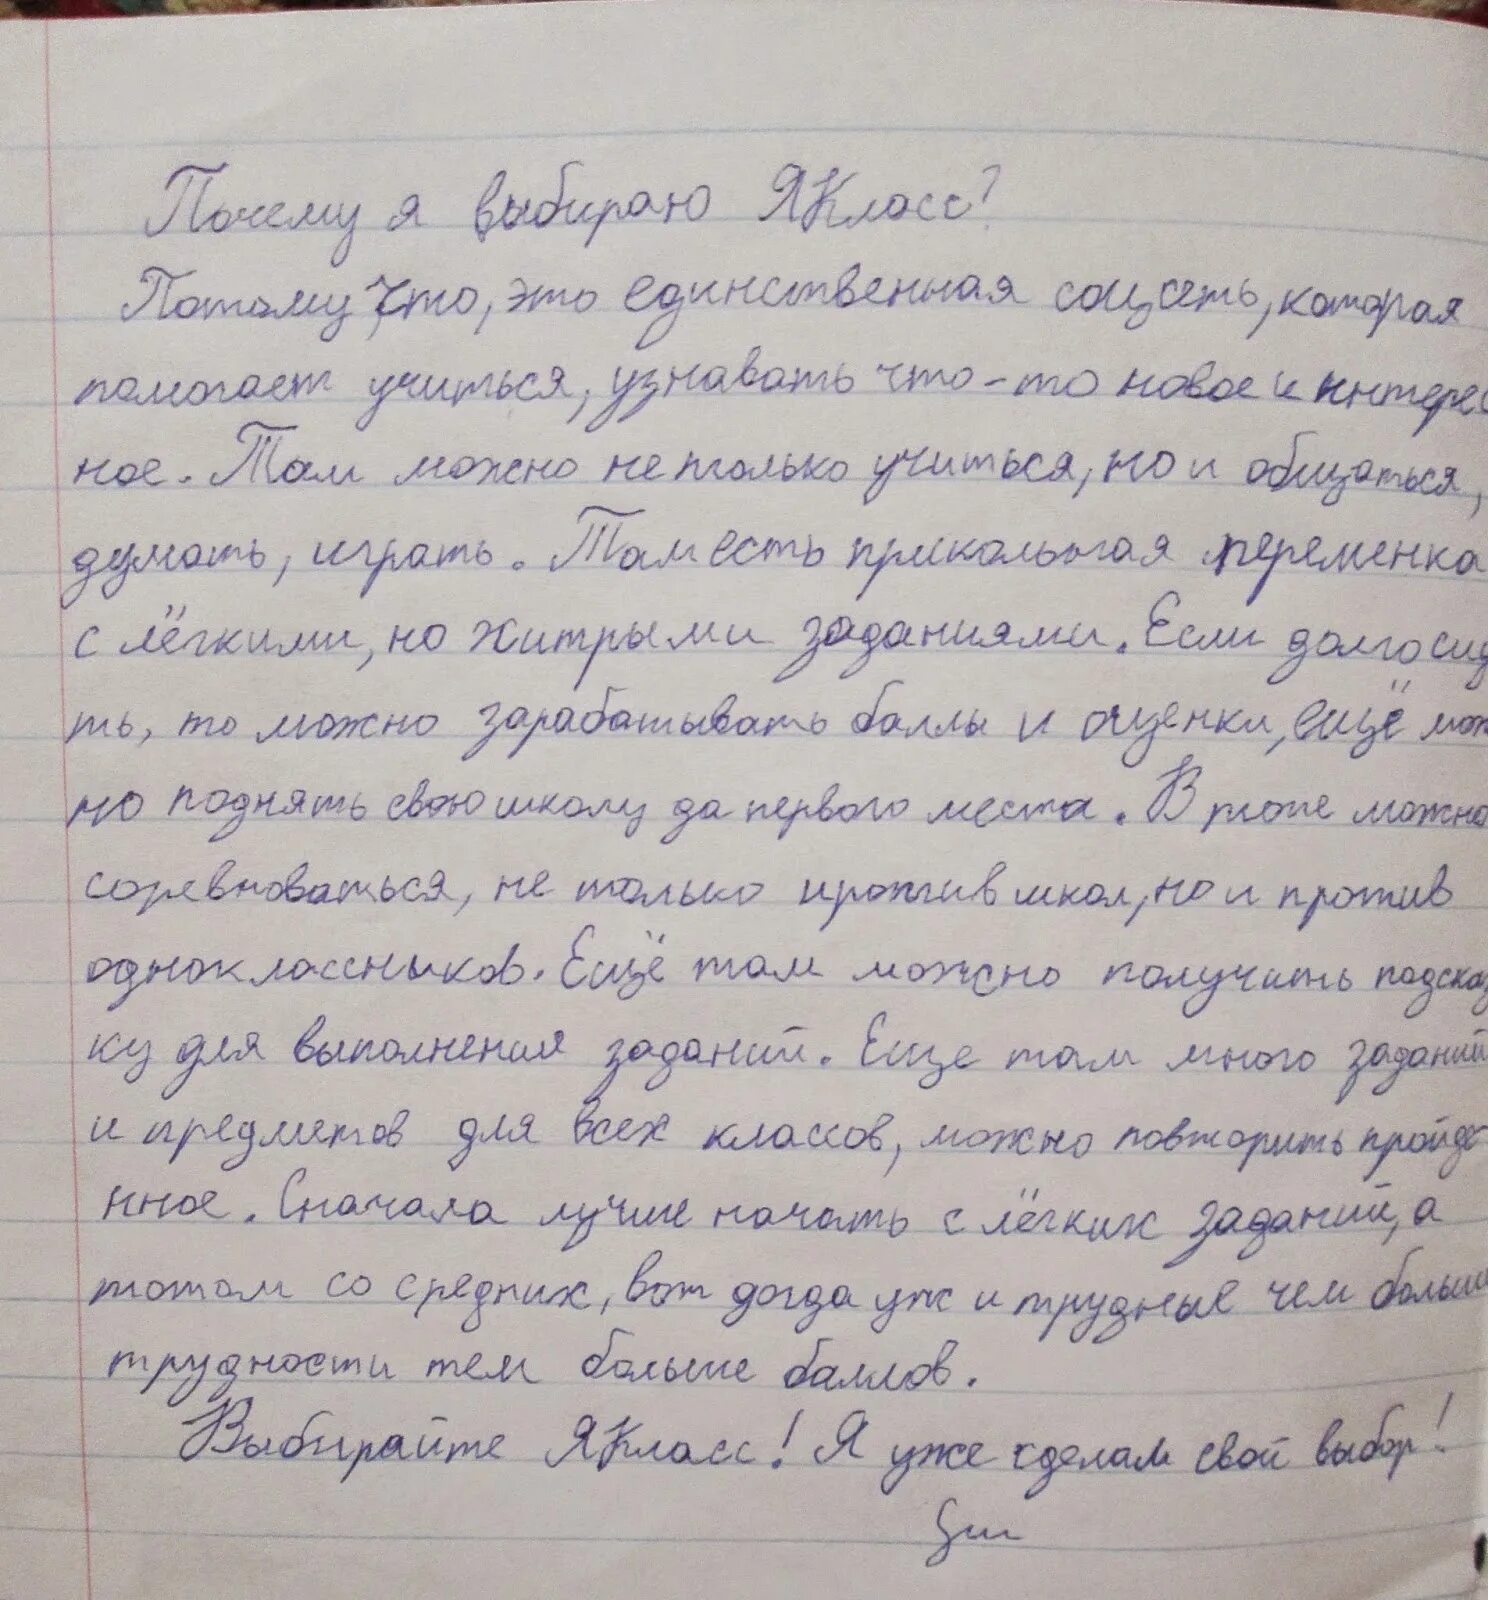 Почему я выбираю ЯКласс?
Потому что, это единственная соцсеть, которая
помогает учиться, узнавать что-то новое и интерес
ное. Там можно не только учиться, но и общаться,
думать, играть. Там есть прикольная переменка
с лёгкими, но хитрыми заданиями. Если долго сид
ть, то можно зарабатывать баллы и оценки, ещё мож
но поднять свою школу да первого места. В топе можно
соревноваться, не только против школ, но и против
одноклассников. Ещё там можно получить подсказ
ку для выполнения заданий. Еще там много заданий
и предметов для всех классов, можно повторить пройде
нное. Сначала лучше начать с лёгких заданий, а
потом со средних, вот догда уж и трудные чем больше
трудности тем больше баллов.
Выбирайте ЯКласс! Я уже сделал свой выбор!